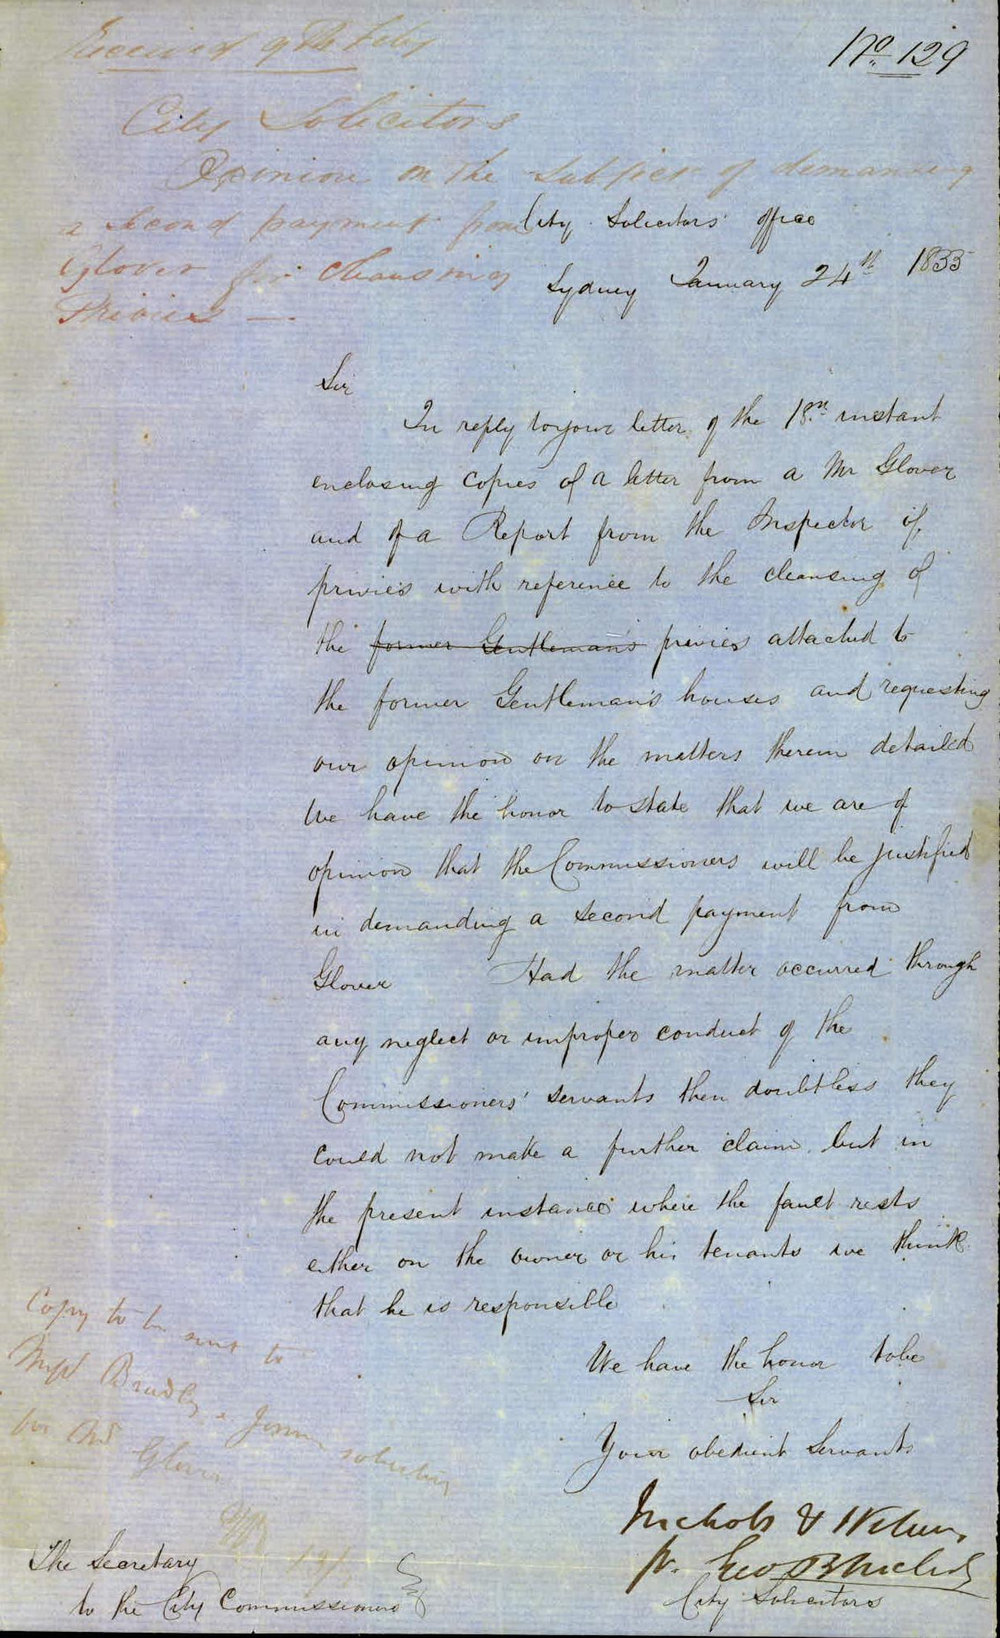 Received 9th Feby
No. 129
City Solicitors
Opinion on the subject of demanding
a second payment from
Glover for cleansing
Privies —
City Solicitors' Office
Sydney January 24th 1855
Sir
In reply to your letter of the 18th instant
enclosing copies of a letter from a Mr Glover
and of a Report from the Inspector of
privies with reference to the cleansing of
the former Gentleman's privies attached to
the former Gentleman's houses and requesting
our opinion on the matters therein detailed
We have the honor to state that we are of
opinion that the Commissioners will be justified
in demanding a second payment from
Glover Had the matter occurred through
any neglect or improper conduct of the
Commissioners' servants then doubtless they
could not make a further claim but in
the present instance where the fault rests
either on the owner or his tenants we think
that he is responsible
We have the honor to be
Sir
Your obedient Servants
Nichols &
pr. Geo R Nichols
City Solicitors
Copy to be sent to
Messrs Bradley & solicitors
for Mr Glover
The Secretary
to the City Commissioners